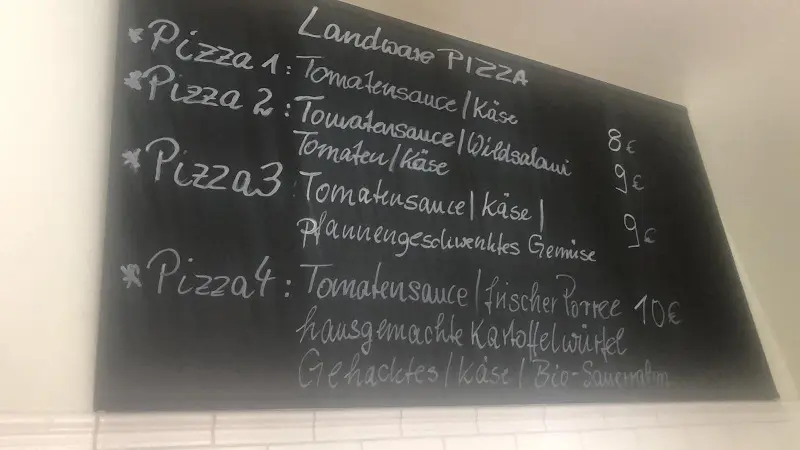 Landware PIZZA
* Pizza 1: Tomatensauce/Käse 8€
* Pizza 2: Tomatensauce/Wildsalami 9€
Tomaten/Käse
* Pizza3: Tomatensauce/Käse/ 9€
Pfannengeschwenktes Gemüse
* Pizza4: Tomatensauce/frischer Porree 10€
hausgemachte Kartoffelwürfel
Gehacktes/Käse/Bio-Sauerrahm